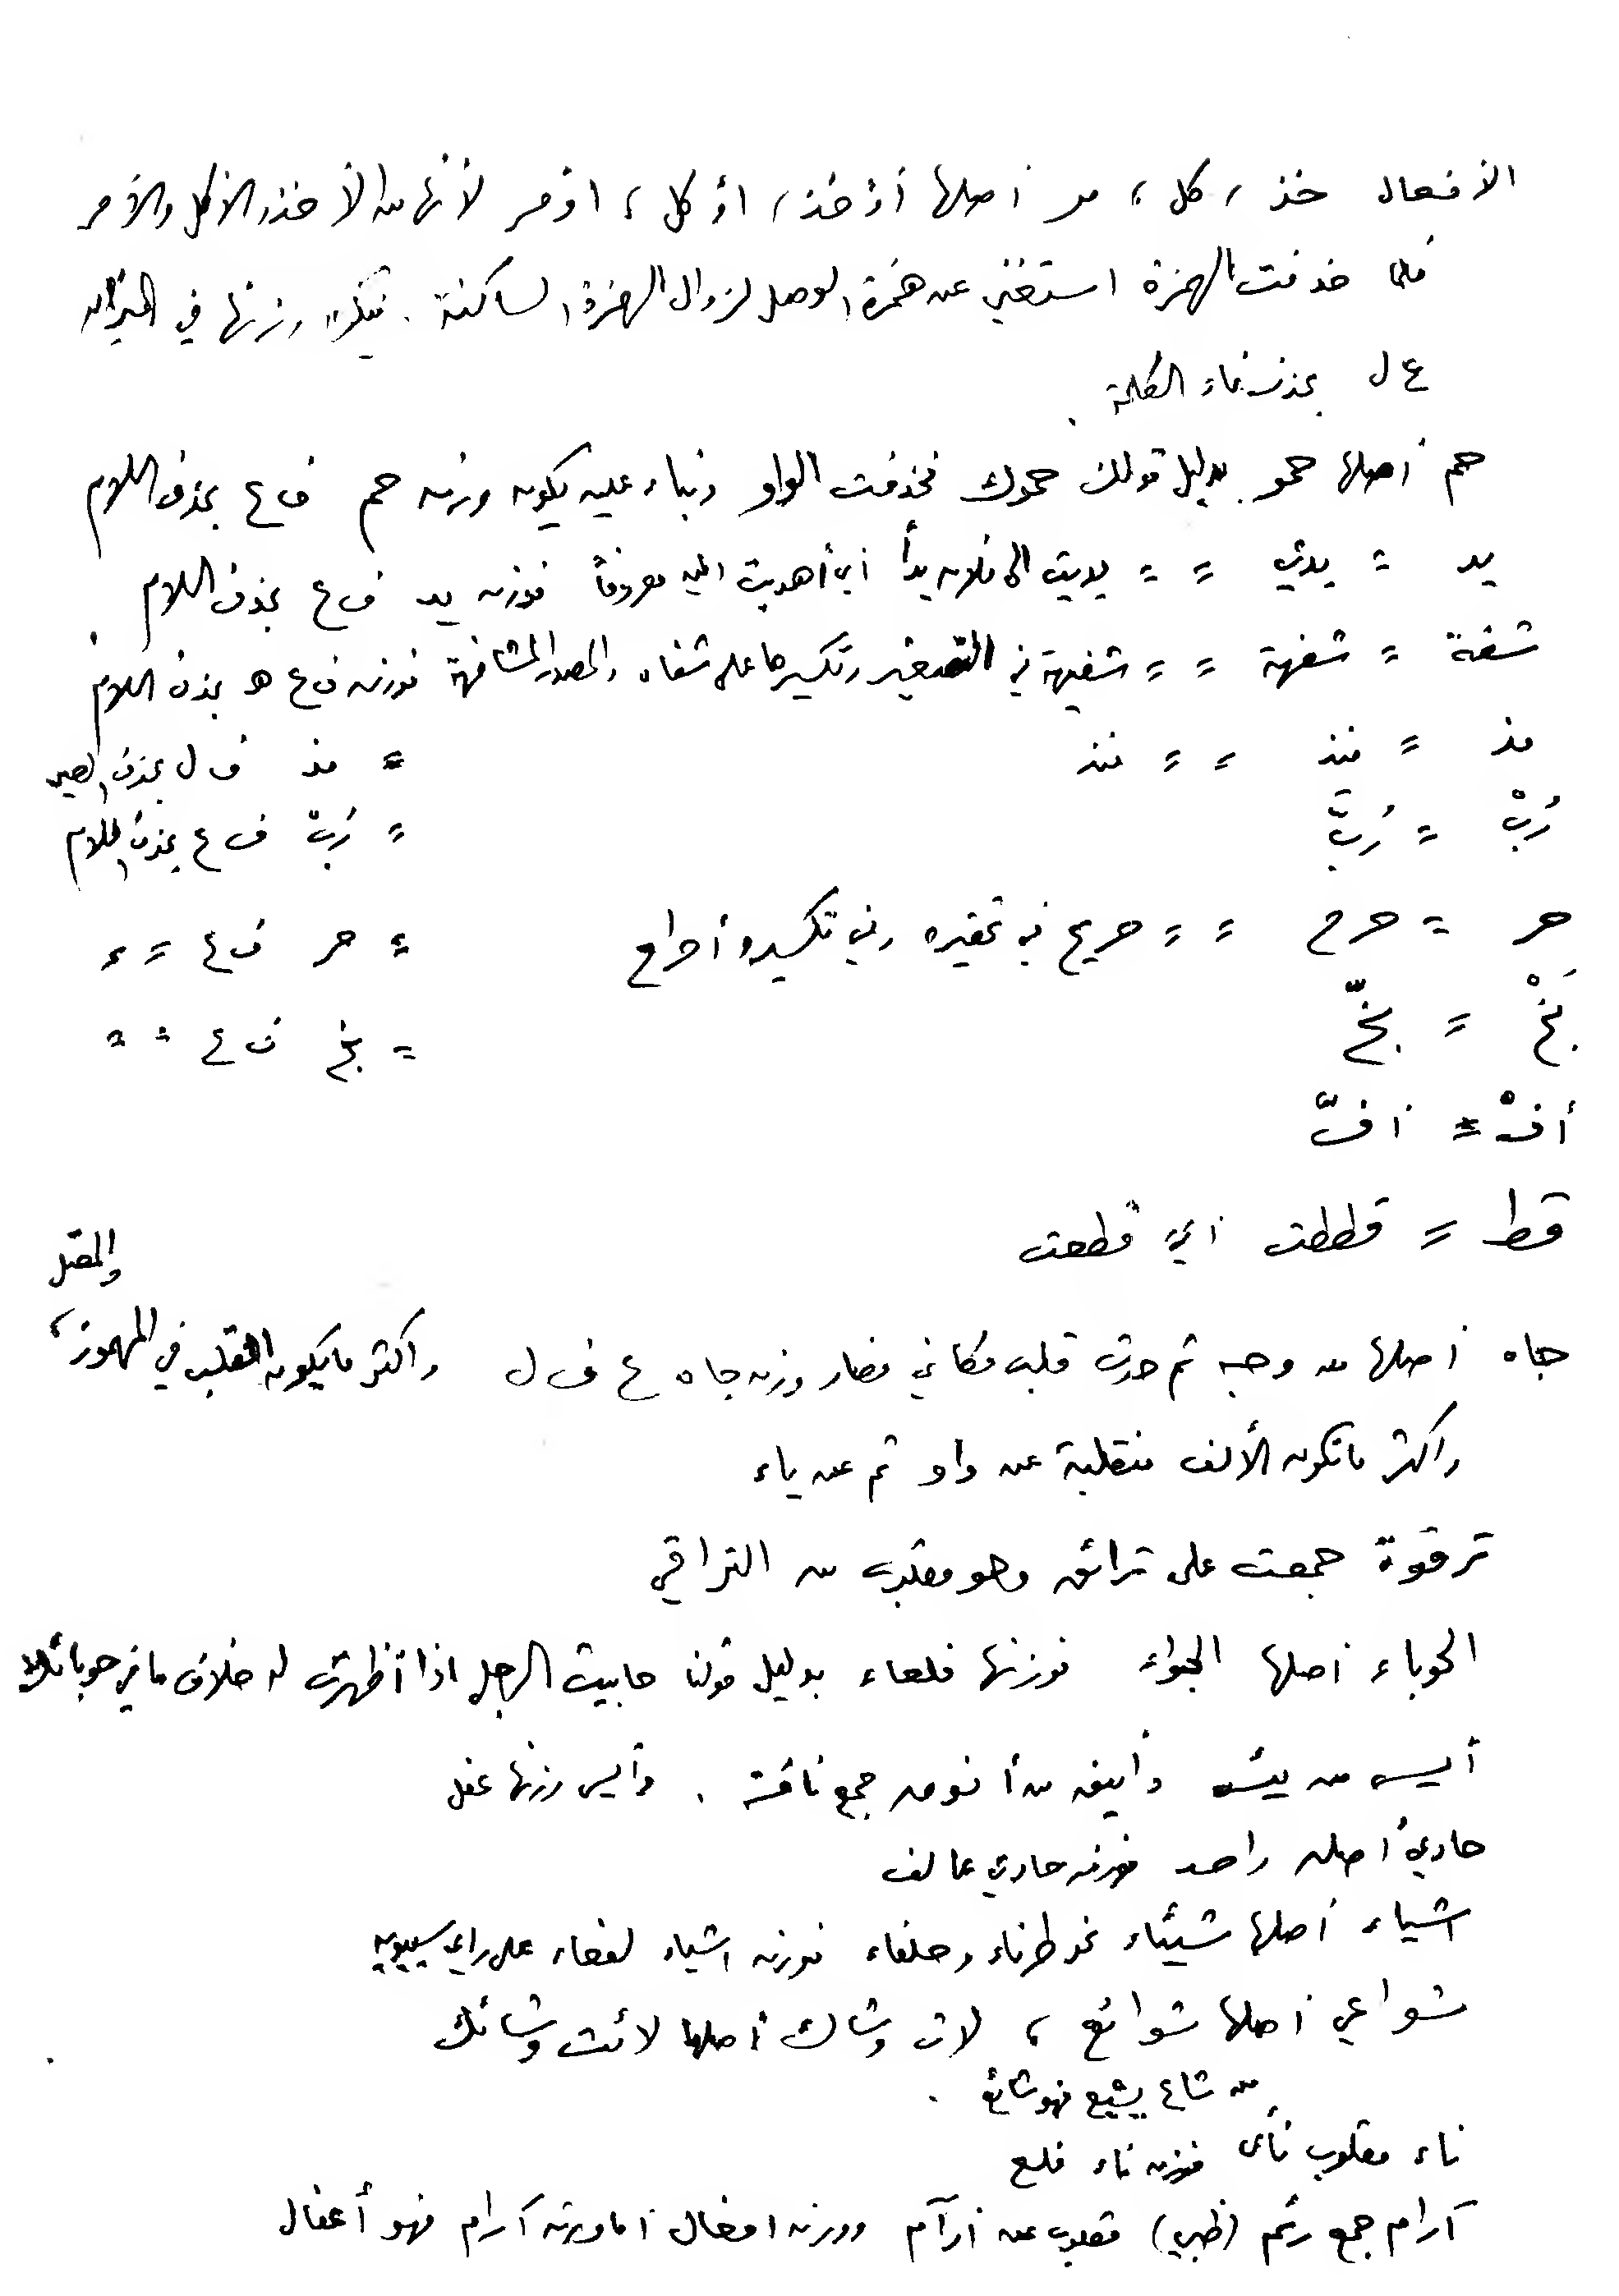 الأفعال خذ، كل، مر أصلها أؤخذ، اؤكل، اؤمر لأنها من الأخذ والأكل والأمر
فلما حذفت الهمزة استغني عن همزة الوصل لزوال الهمزة الساكنة. فيكون وزنها في الميزان
ع ل بحذف فاء الكلمة.
حم أصلها حمو بدليل قولك حموك فحذفت الواو وبناء عليه يكون وزن حم ف ع بحذف اللام
يد = يدي = = يديت الى فلان يداً أي أهديت اليه معروفاً فوزن يد ف ع بحذف اللام.
شفة = شفهة = = شفيهة في التصغير وتكسيرها على شفاه والمصدر المشافهة فوزنه ف ع ه بحذف اللام
مذ = منذ = = منذ = مذ ف ل بحذف العين
رُبْ = رُبَّ = رُبْ ف ع بحذف اللام
حر = حرح = = حريح في تحقيره وفي تكسيره أحراح = حر ف ع = =
بَخْ = بخّ = بخ ف ع = =
أفْ = أفّ
قط = قططت أي قطعت
والمعتل
جاه أصلها من وجه ثم حدث قلب مكاني فصار وزن جاه ع ف ل واكثر ما يكون القلب في المهموز،
واكثر ما تكون الألف منقلبة عن واو ثم عن ياء
ترقوة جمعت على ترائق وهو مقلوب من التراقي
الحوباء أصلها الحبواء فوزنها فلعاء بدليل قولنا حابيت الرجل اذا أظهرت له خلاف ما في حوبائك
أيس من يئس وأينق من أنوق جمع ناقة. وأيس وزنها عفل
حادي أصله واحد فوزن حادي عالف
اشياء أصلها شيئاء نحو طرفاء وحلفاء فوزن اشياء لفعاء على راي سيبويه
شواعي أصلها شوائع، لاث وشاك أصلها لائث وشائك
من شاع يشيع فهو شائع.
ناء مقلوب نأى فوزن ناء فلع
آرام جمع رئم (ظبي) مقلوب عن أرآم ووزنه افعال أما وزن آرام فهو أعفال